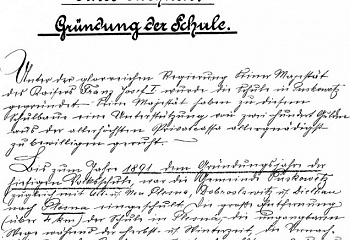 Gründung der Schule.
Unter der glorreichen Regierung Seiner Majestät
des Kaisers Franz Josef I wurde die Schule in
gegründet. Seine Majestät haben zu diesem
Schulbaue eine Unterstützung von zwei hundert Gulden
aus der allerhöchsten Privatcasse allergnädigst
zu bewilligen geruht.
Bis zum Jahre 1891 dem Gründungsjahre der
hiesigen Volksschule, war die Gemeinde
nach eingeschult. Die große Entfernung
(über 4 km) der Schule in die ungangbaren
Wege während der Herbst- u Winterzeit, die